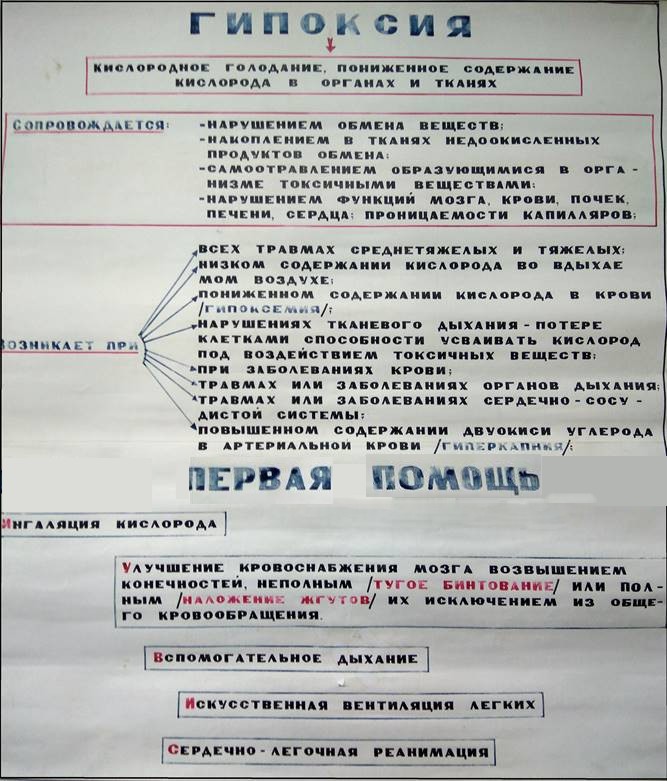 ГИПОКСИЯ
КИСЛОРОДНОЕ ГОЛОДАНИЕ, ПОНИЖЕННОЕ СОДЕРЖАНИЕ
КИСЛОРОДА В ОРГАНАХ И ТКАНЯХ
СОПРОВОЖДАЕТСЯ:
-НАРУШЕНИЕМ ОБМЕНА ВЕЩЕСТВ;
-НАКОПЛЕНИЕМ В ТКАНЯХ НЕДООКИСЛЕННЫХ
ПРОДУКТОВ ОБМЕНА;
-САМООТРАВЛЕНИЕМ ОБРАЗУЮЩИМИСЯ В ОРГА-
НИЗМЕ ТОКСИЧНЫМИ ВЕЩЕСТВАМИ;
-НАРУШЕНИЕМ ФУНКЦИЙ МОЗГА, КРОВИ, ПОЧЕК,
ПЕЧЕНИ, СЕРДЦА; ПРОНИЦАЕМОСТИ КАПИЛЛЯРОВ;
ВОЗНИКАЕТ ПРИ
ВСЕХ ТРАВМАХ СРЕДНЕТЯЖЕЛЫХ И ТЯЖЕЛЫХ;
НИЗКОМ СОДЕРЖАНИИ КИСЛОРОДА ВО ВДЫХАЕ
МОМ ВОЗДУХЕ;
ПОНИЖЕННОМ СОДЕРЖАНИИ КИСЛОРОДА В КРОВИ
/ГИПОКСЕМИЯ/;
НАРУШЕНИЯХ ТКАНЕВОГО ДЫХАНИЯ - ПОТЕРЕ
КЛЕТКАМИ СПОСОБНОСТИ УСВАИВАТЬ КИСЛОРОД
ПОД ВОЗДЕЙСТВИЕМ ТОКСИЧНЫХ ВЕЩЕСТВ;
ПРИ ЗАБОЛЕВАНИЯХ КРОВИ;
ТРАВМАХ ИЛИ ЗАБОЛЕВАНИЯХ ОРГАНОВ ДЫХАНИЯ;
ТРАВМАХ ИЛИ ЗАБОЛЕВАНИЯХ СЕРДЕЧНО-СОСУ-
ДИСТОЙ СИСТЕМЫ;
ПОВЫШЕННОМ СОДЕРЖАНИИ ДВУОКИСИ УГЛЕРОДА
В АРТЕРИАЛЬНОЙ КРОВИ /ГИПЕРКАПНИЯ/;
ПЕРВАЯ ПОМОЩЬ
ИНГАЛЯЦИЯ КИСЛОРОДА
УЛУЧШЕНИЕ КРОВОСНАБЖЕНИЯ МОЗГА ВОЗВЫШЕНИЕМ
КОНЕЧНОСТЕЙ, НЕПОЛНЫМ /ТУГОЕ БИНТОВАНИЕ/ ИЛИ ПОЛ-
НЫМ /НАЛОЖЕНИЕ ЖГУТОВ/ ИХ ИСКЛЮЧЕНИЕМ ИЗ ОБЩЕ-
ГО КРОВООБРАЩЕНИЯ.
ВСПОМОГАТЕЛЬНОЕ ДЫХАНИЕ
ИСКУССТВЕННАЯ ВЕНТИЛЯЦИЯ ЛЕГКИХ
СЕРДЕЧНО-ЛЕГОЧНАЯ РЕАНИМАЦИЯ